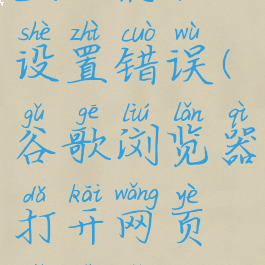 shè zhì cuò wù
设置错误(
gǔ gē liú lǎn qì
谷歌浏览器
dǎ kāi wǎng yè
打开网页